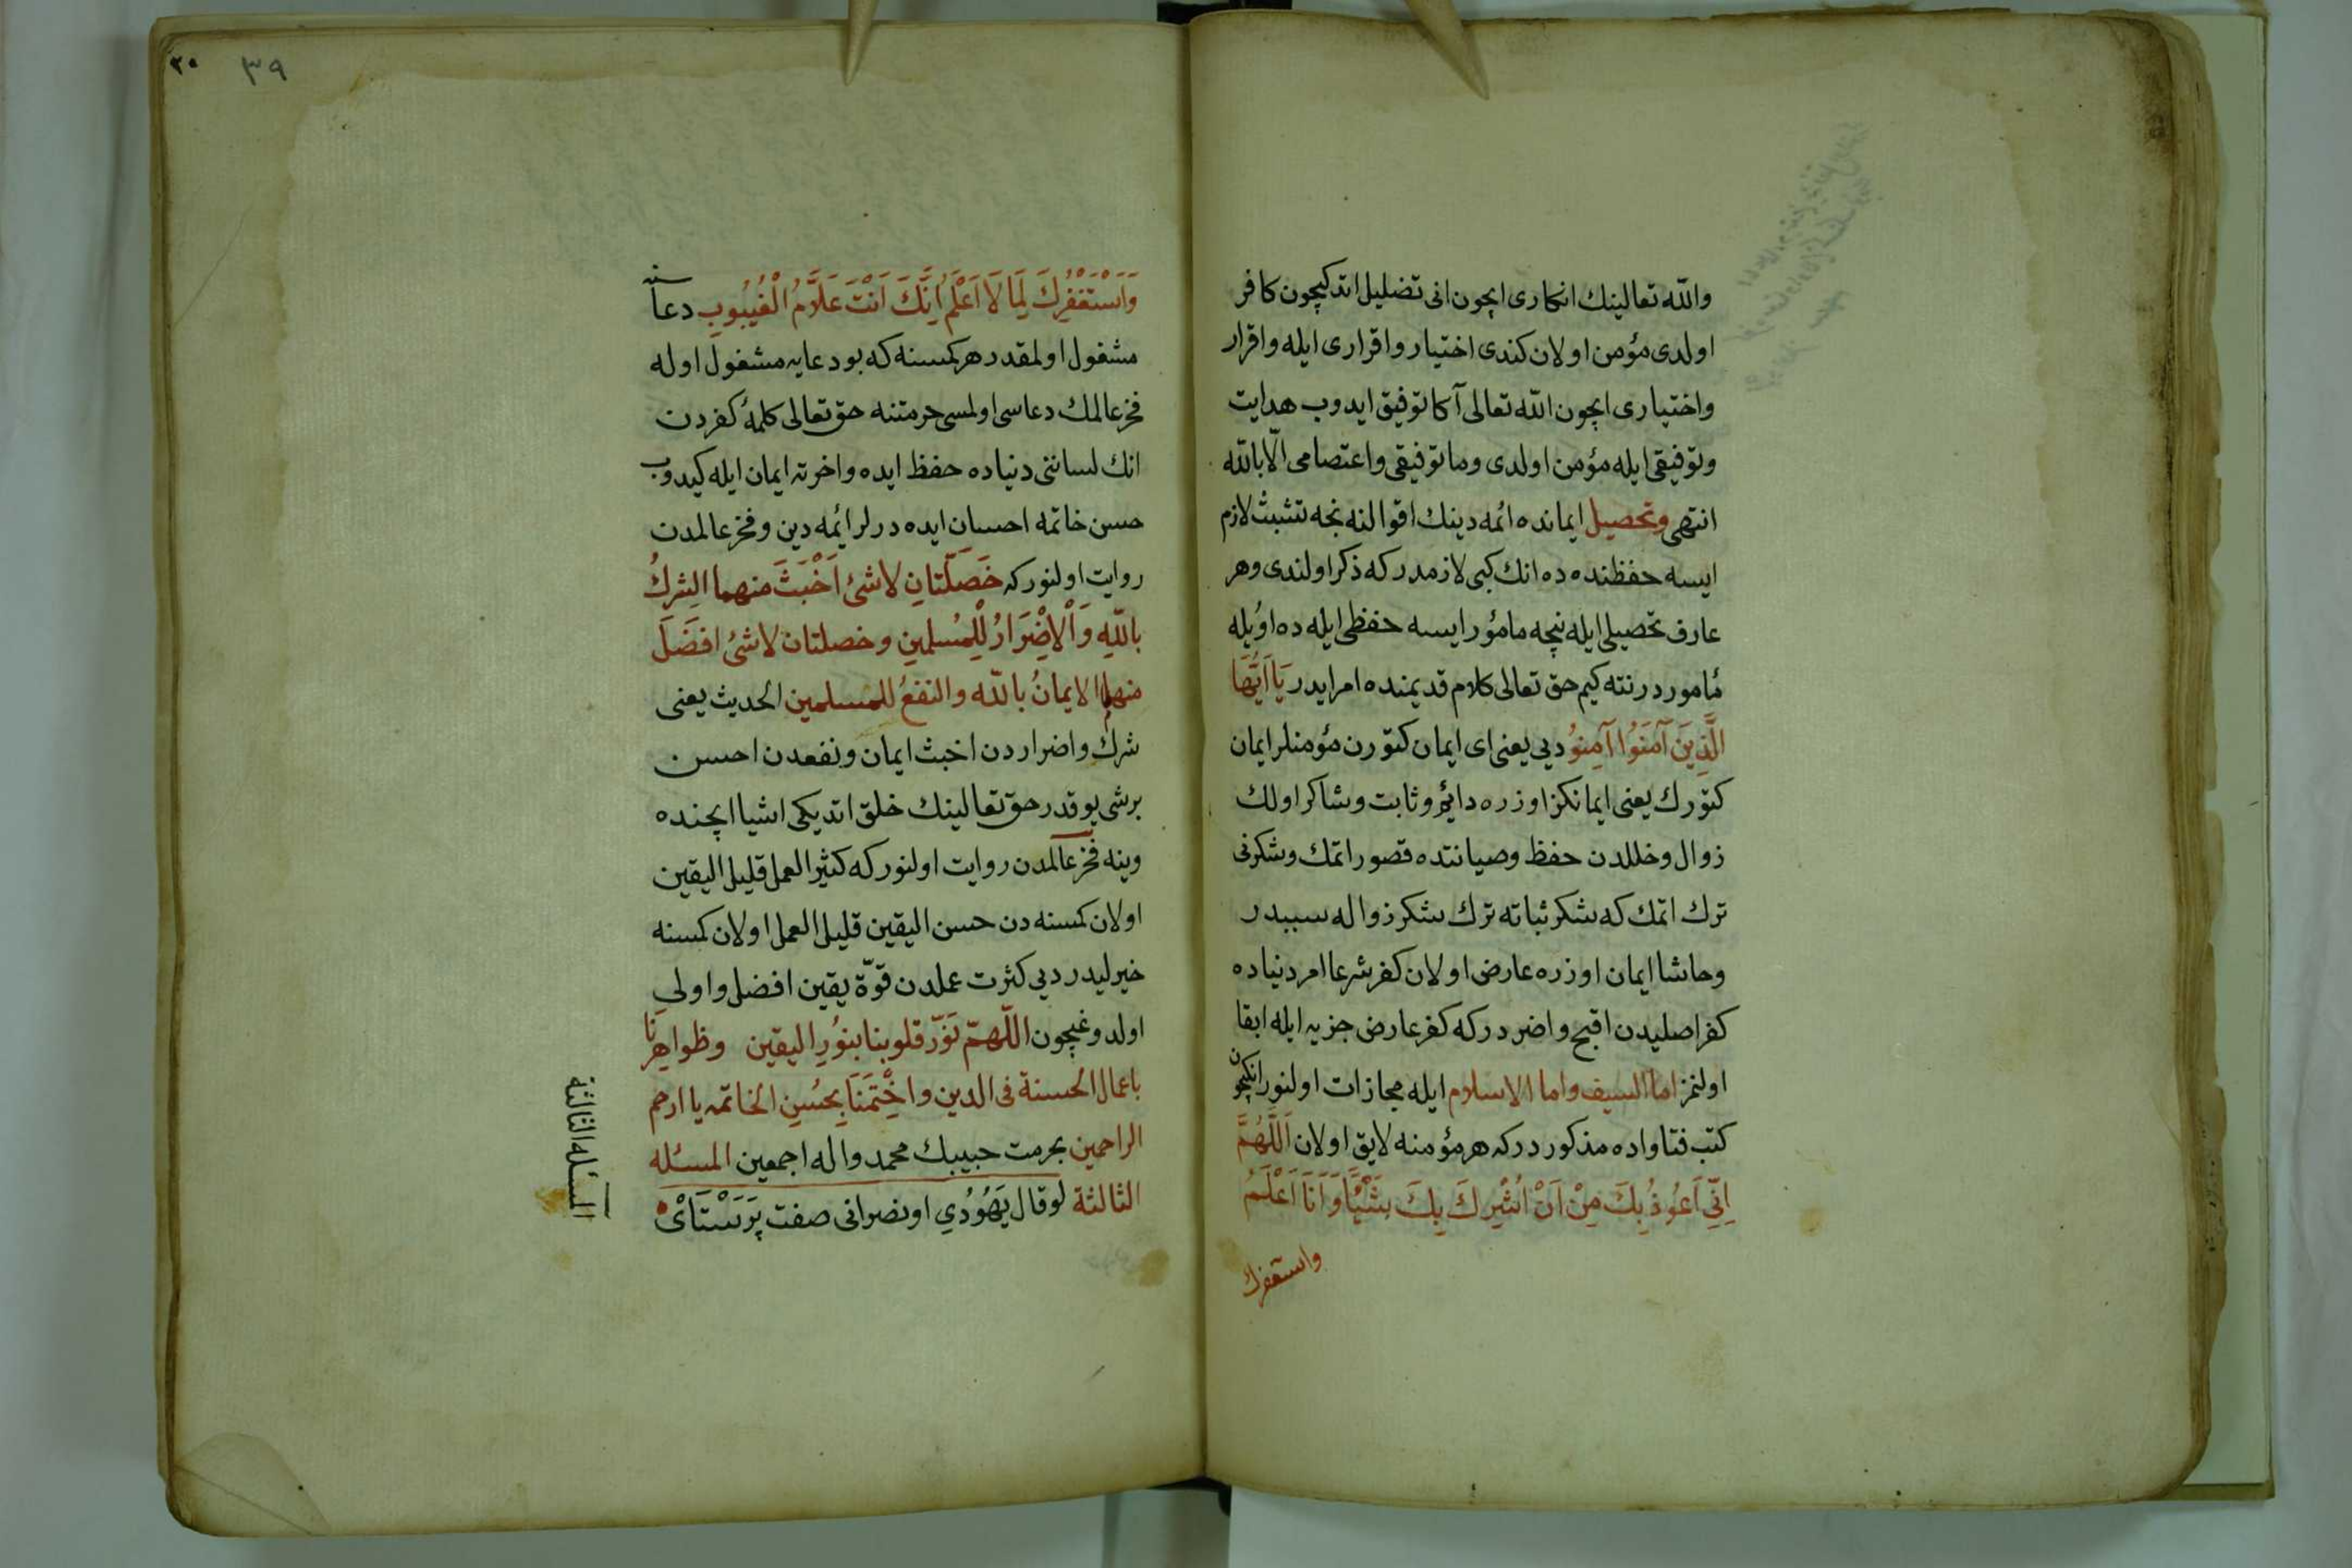 والله تعالینك انكاری ایچون انی تضلیل اتدكیچون كافر
اولدی مؤمن اولان كندی اختیار واقراری ایله واقرار
واختیاری ایچون الله تعالی آكا توفیق ایدوب هدایت
وتوفیقی ایله مؤمن اولدی وما توفیقی واعتصامی الّا بالله
انتهی وتحصیل ایمانده ائمه دینك اقوالنه نجه تشبث لازم
ایسه حفظنده ده انك كبی لازمدر كه ذكر اولندی وهر
عارف تحصیلی ایله نیچه مامؤر ایسه حفظی ایله ده اوُیله
مأموردر نته كیم حق تعالی كلام قدیمنده امر ایدر یَا اَیُّهَا
الَّذِینَ آمَنُوا آمِنُوُ دیی یعنی ای ایمان كتورن مؤمنلر ایمان
كتورك یعنی ایمانكز اوزره دائم وثابت وشاكر اولك
زوال وخللدن حفظ وصیانتده قصور اتمك وشكرنی
ترك اتمك كه شكر ثباته ترك شكر زواله سببدر
وحاشا ایمان اوزره عارض اولان كفر شرعا امر دنیاده
كفر اصلیدن اقبح واضر دركه كفر عارض جزیه ایله ابقا
اولنمز اما السیف واما الاسلام ایله مجازات اولنور انكیچون
كتب فتاواده مذكور دركه هر مؤمنه لایق اولان اَللّهُمَّ
اِنِّی اَعُوذُ بِكَ مِنْ اَنْ اُشْرِكَ بِكَ شَیْئًا وَاَنَا اَعْلَمُ
واستغفرك
٣٠ ٣٩
وَاَسْتَغْفِرُكَ لِمَا لَا اَعْلَمُ اِنَّكَ اَنْتَ عَلَّامُ الْغُیُوبِ دعاسنه
مشغول اولمقدر هر كمسنه كه بو دعایه مشغول اوله
فخر عالمك دعاسی اولمسی حرمتنه حق تعالی كلمۀ كفردن
انك لساننی دنیاده حفظ ایده واخرته ایمان ایله كیدوب
حسن خاتمه احسان ایده درلر ائمه دین وفخر عالمدن
روایت اولنور كه خَصَلَتَانِ لاشئ اَخْبَثَ منهما الشِركُ
بالله وَاْلاِضْرَارُ لِلْمُسلمین وخصلتان لاشئ افضَلَ
منهما الایمانُ بالله والنفعُ للمسلمین الحدیث یعنی
شرك واضراردن اخبث ایمان ونفعدن احسن
برشی یوقدر حق تعالینك خلق اتدیكی اشیا ایچنده
وینه فخر عالمدن روایت اولنور كه كثیر العمل قلیل الیقین
اولان كمسنه دن حسن الیقین قلیل العمل اولان كمسنه
خیرلیدر دیی كثرت عملدن قوّة یقین افضل واولی
اولدوغیچون اللّهمّ نَوّر قلوبنا بنوُرِ الیقین وظواهرنا
باعمال الحسنة فی الدین واخْتِمَنَا بِحُسنِ الخاتمه یا ارحم
الراحمین بحرمت حبیبك محمد واله اجمعین المسئله
الثالثة لوقال یَهُوُدِي اونصرانی صفت پَرَسْتَاىْ
المسئلة الثالثة